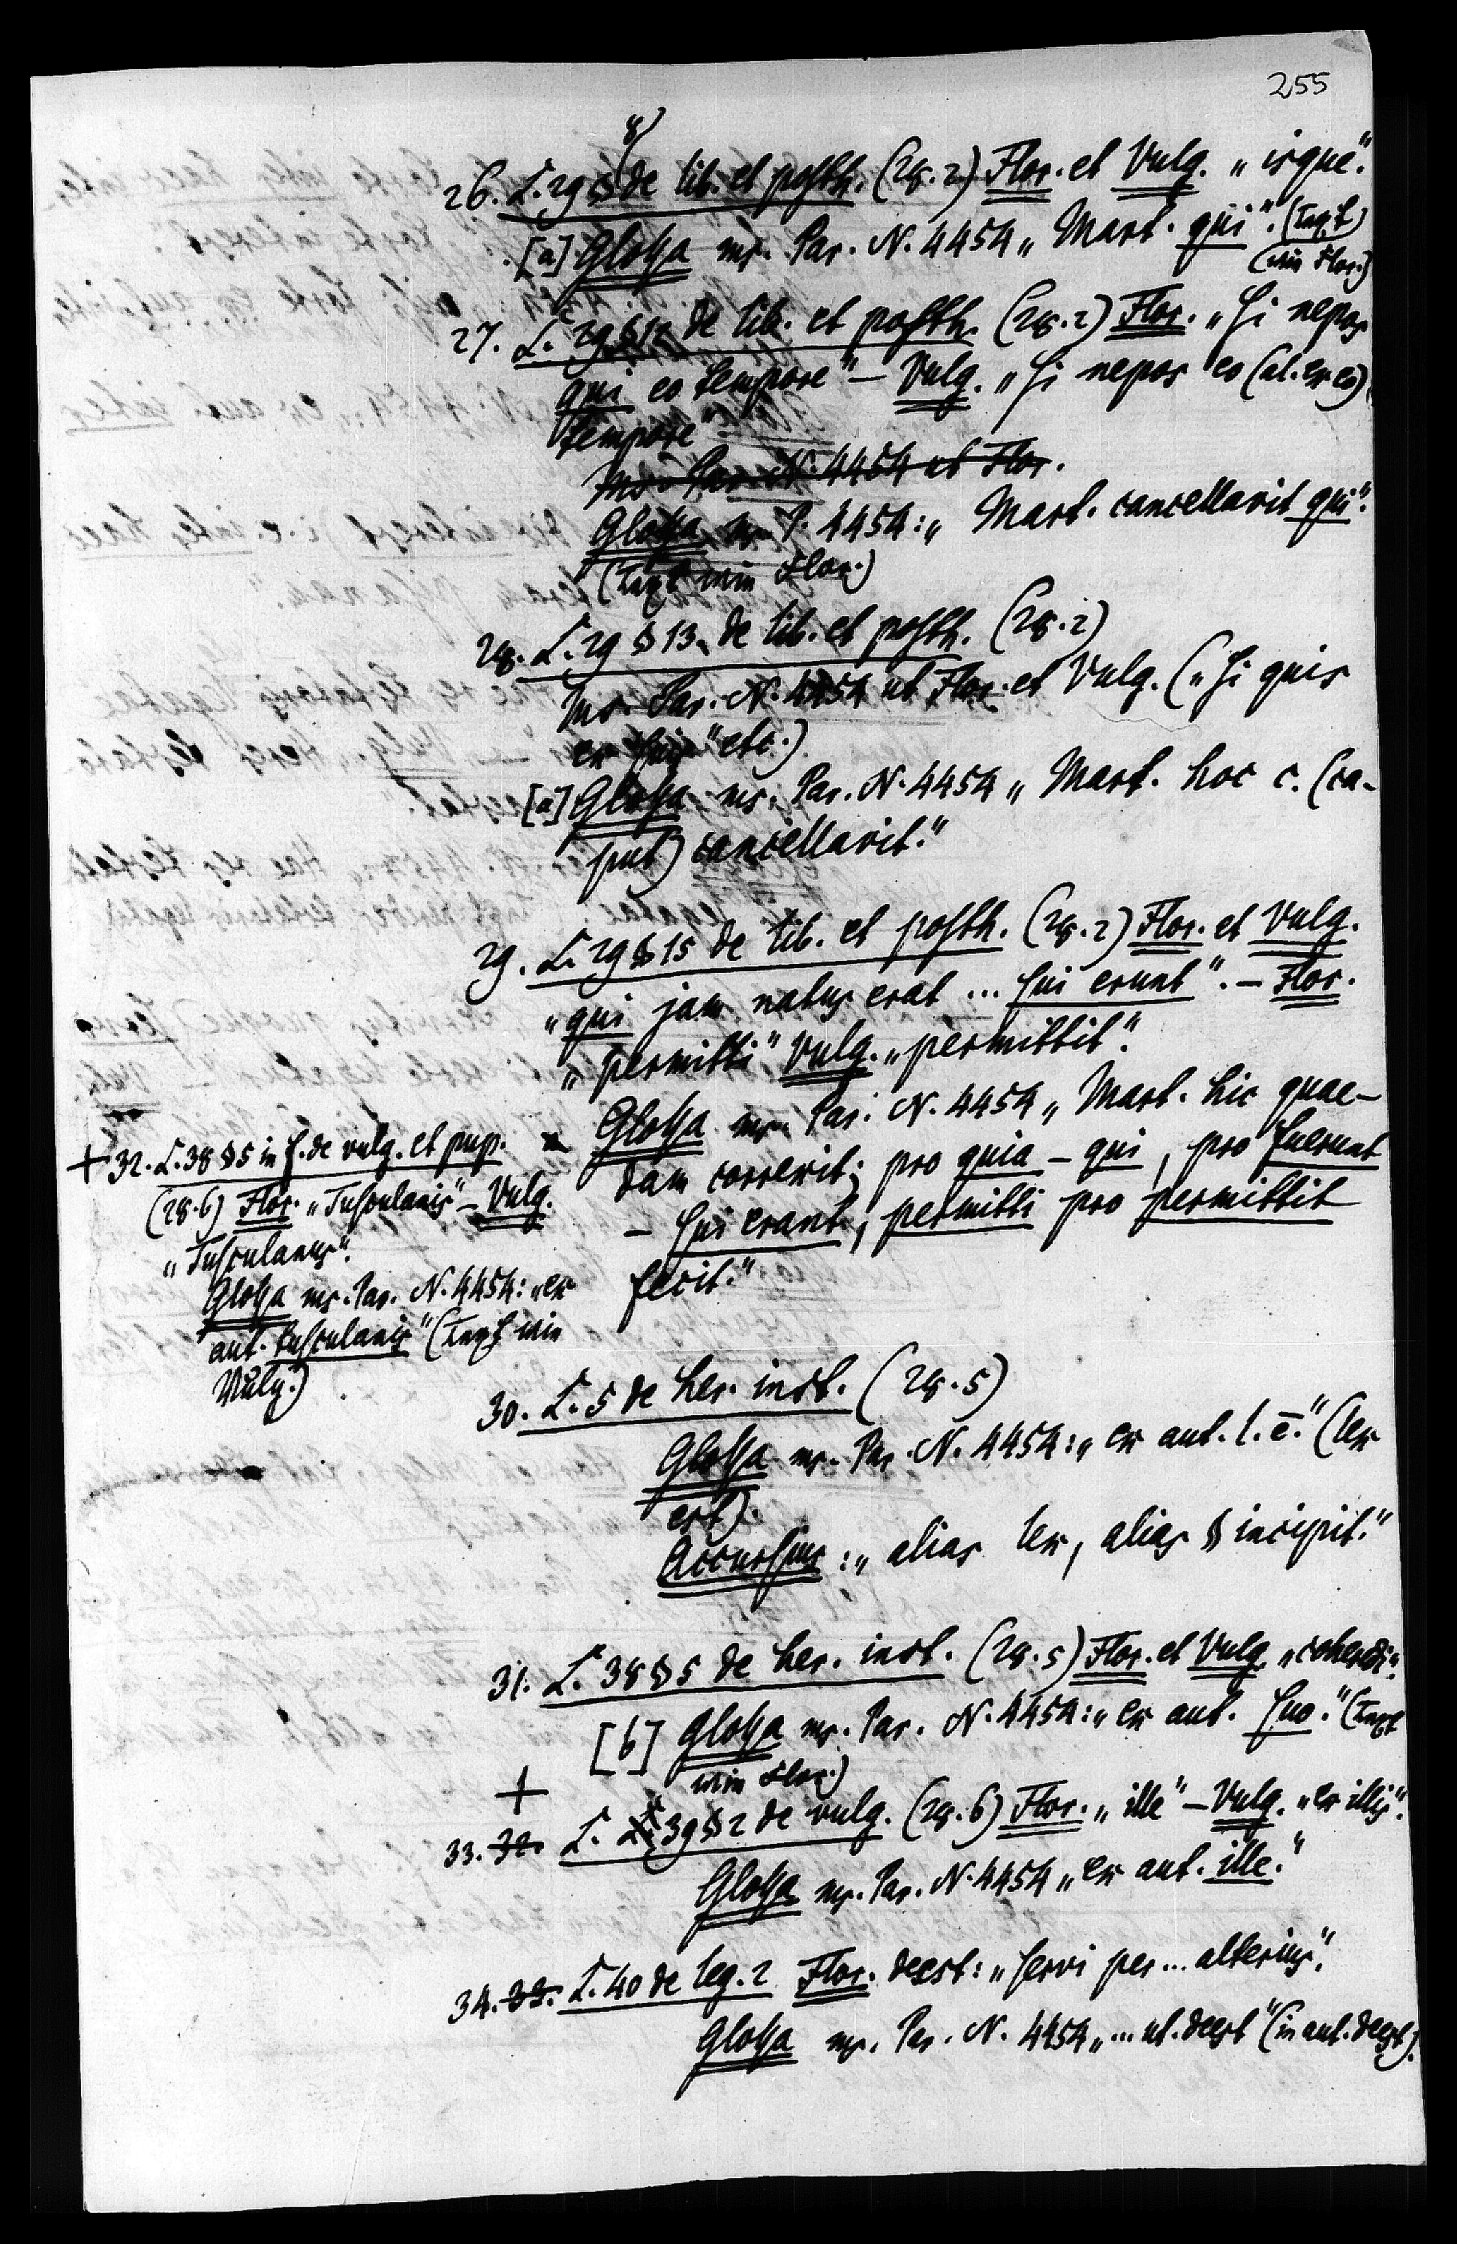 255
26. L. 29 § 8 de lib. et posth. (28.2) Flor. et Vulg. „isque“.
[a] Glossa ms. Par. N. 4454 „Mart. qui“. (Text
wie Flor.)
27. L. 29 § 12 de lib. et posth. (28.2) Flor. „Si nepos
qui eo tempore“ – Vulg. „Si nepos eo (al. ex eo)
tempore“
Ms. Par. N. 4454 ut Flor.
Glossa ms. P. 4454: „Mart. cancellavit qui“.
(Text wie Flor.)
28. L. 29 § 13. de lib. et posth. (28.2)
Ms. Par. N. 4454 ut Flor. et Vulg. („Si quis
ex suis“ etc.)
[a] Glossa ms. Par. N. 4454 „Mart. hoc c. (ca-
put) cancellavit.“
29. L. 29 § 15 de lib. et posth. (28.2) Flor. et Vulg.
„qui jam natus erat ... sui erunt“. – Flor.
„permitti“ Vulg. „permittit“.
Glossa ms. Par. N. 4454 „Mart. hic quae-
dam correxit; pro quia – qui, pro fuerunt
– sui erant, permitti pro permittit
fecit.“
+ 32. L. 38 § 5 in f. de vulg. et pup.
(28.6) Flor. „Tusculanis“ – Vulg.
„Tusculanus“.
Glossa ms. Par. N. 4454: „ex
aut. tusculanis“ (Text wie
Vulg.)
30. L. 5 de her. inst. (28.5)
Glossa ms. Par. N. 4454: „ex aut. l. ē.“ (lex
est).
Accursius: „alias lex, alias § incipit.“
31. L. 38 § 5 de her. inst. (28.5) Flor. et Vulg. „coheredi“.
[b] Glossa ms. Par. N. 4454: „ex aut. suo.“ (Text
wie Flor.)
+
33. 32. L. L. 39 § 2 de vulg. (28.6) Flor. „ille“ – Vulg. „ex illis“.
Glossa ms. Par. N. 4454 „ex aut. ille.“
34. 33. L. 40 de leg. 2 Flor. deest: „servi per ... alterius“.
Glossa ms. Par. N. 4454 „... ut. deest“ (in aut. deest).